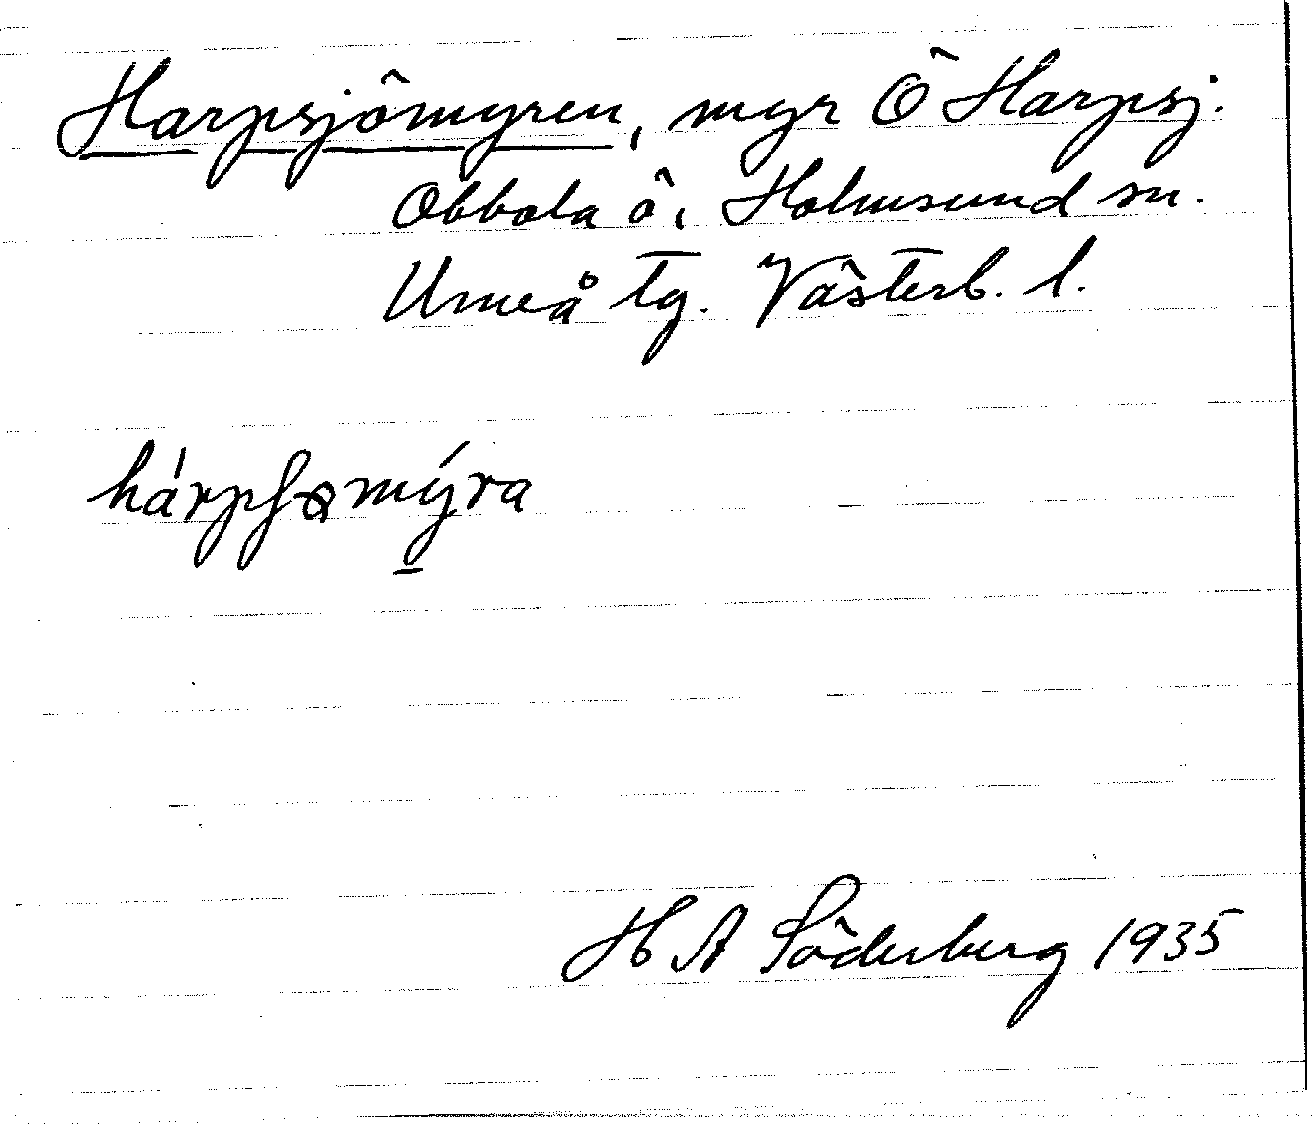 Harpsjömyren, myr Ö Harpsj.
Obbola ö, Holmsund sn.
Umeå tg. Västerb. l.
hárpʃømýra
H A Söderberg 1935